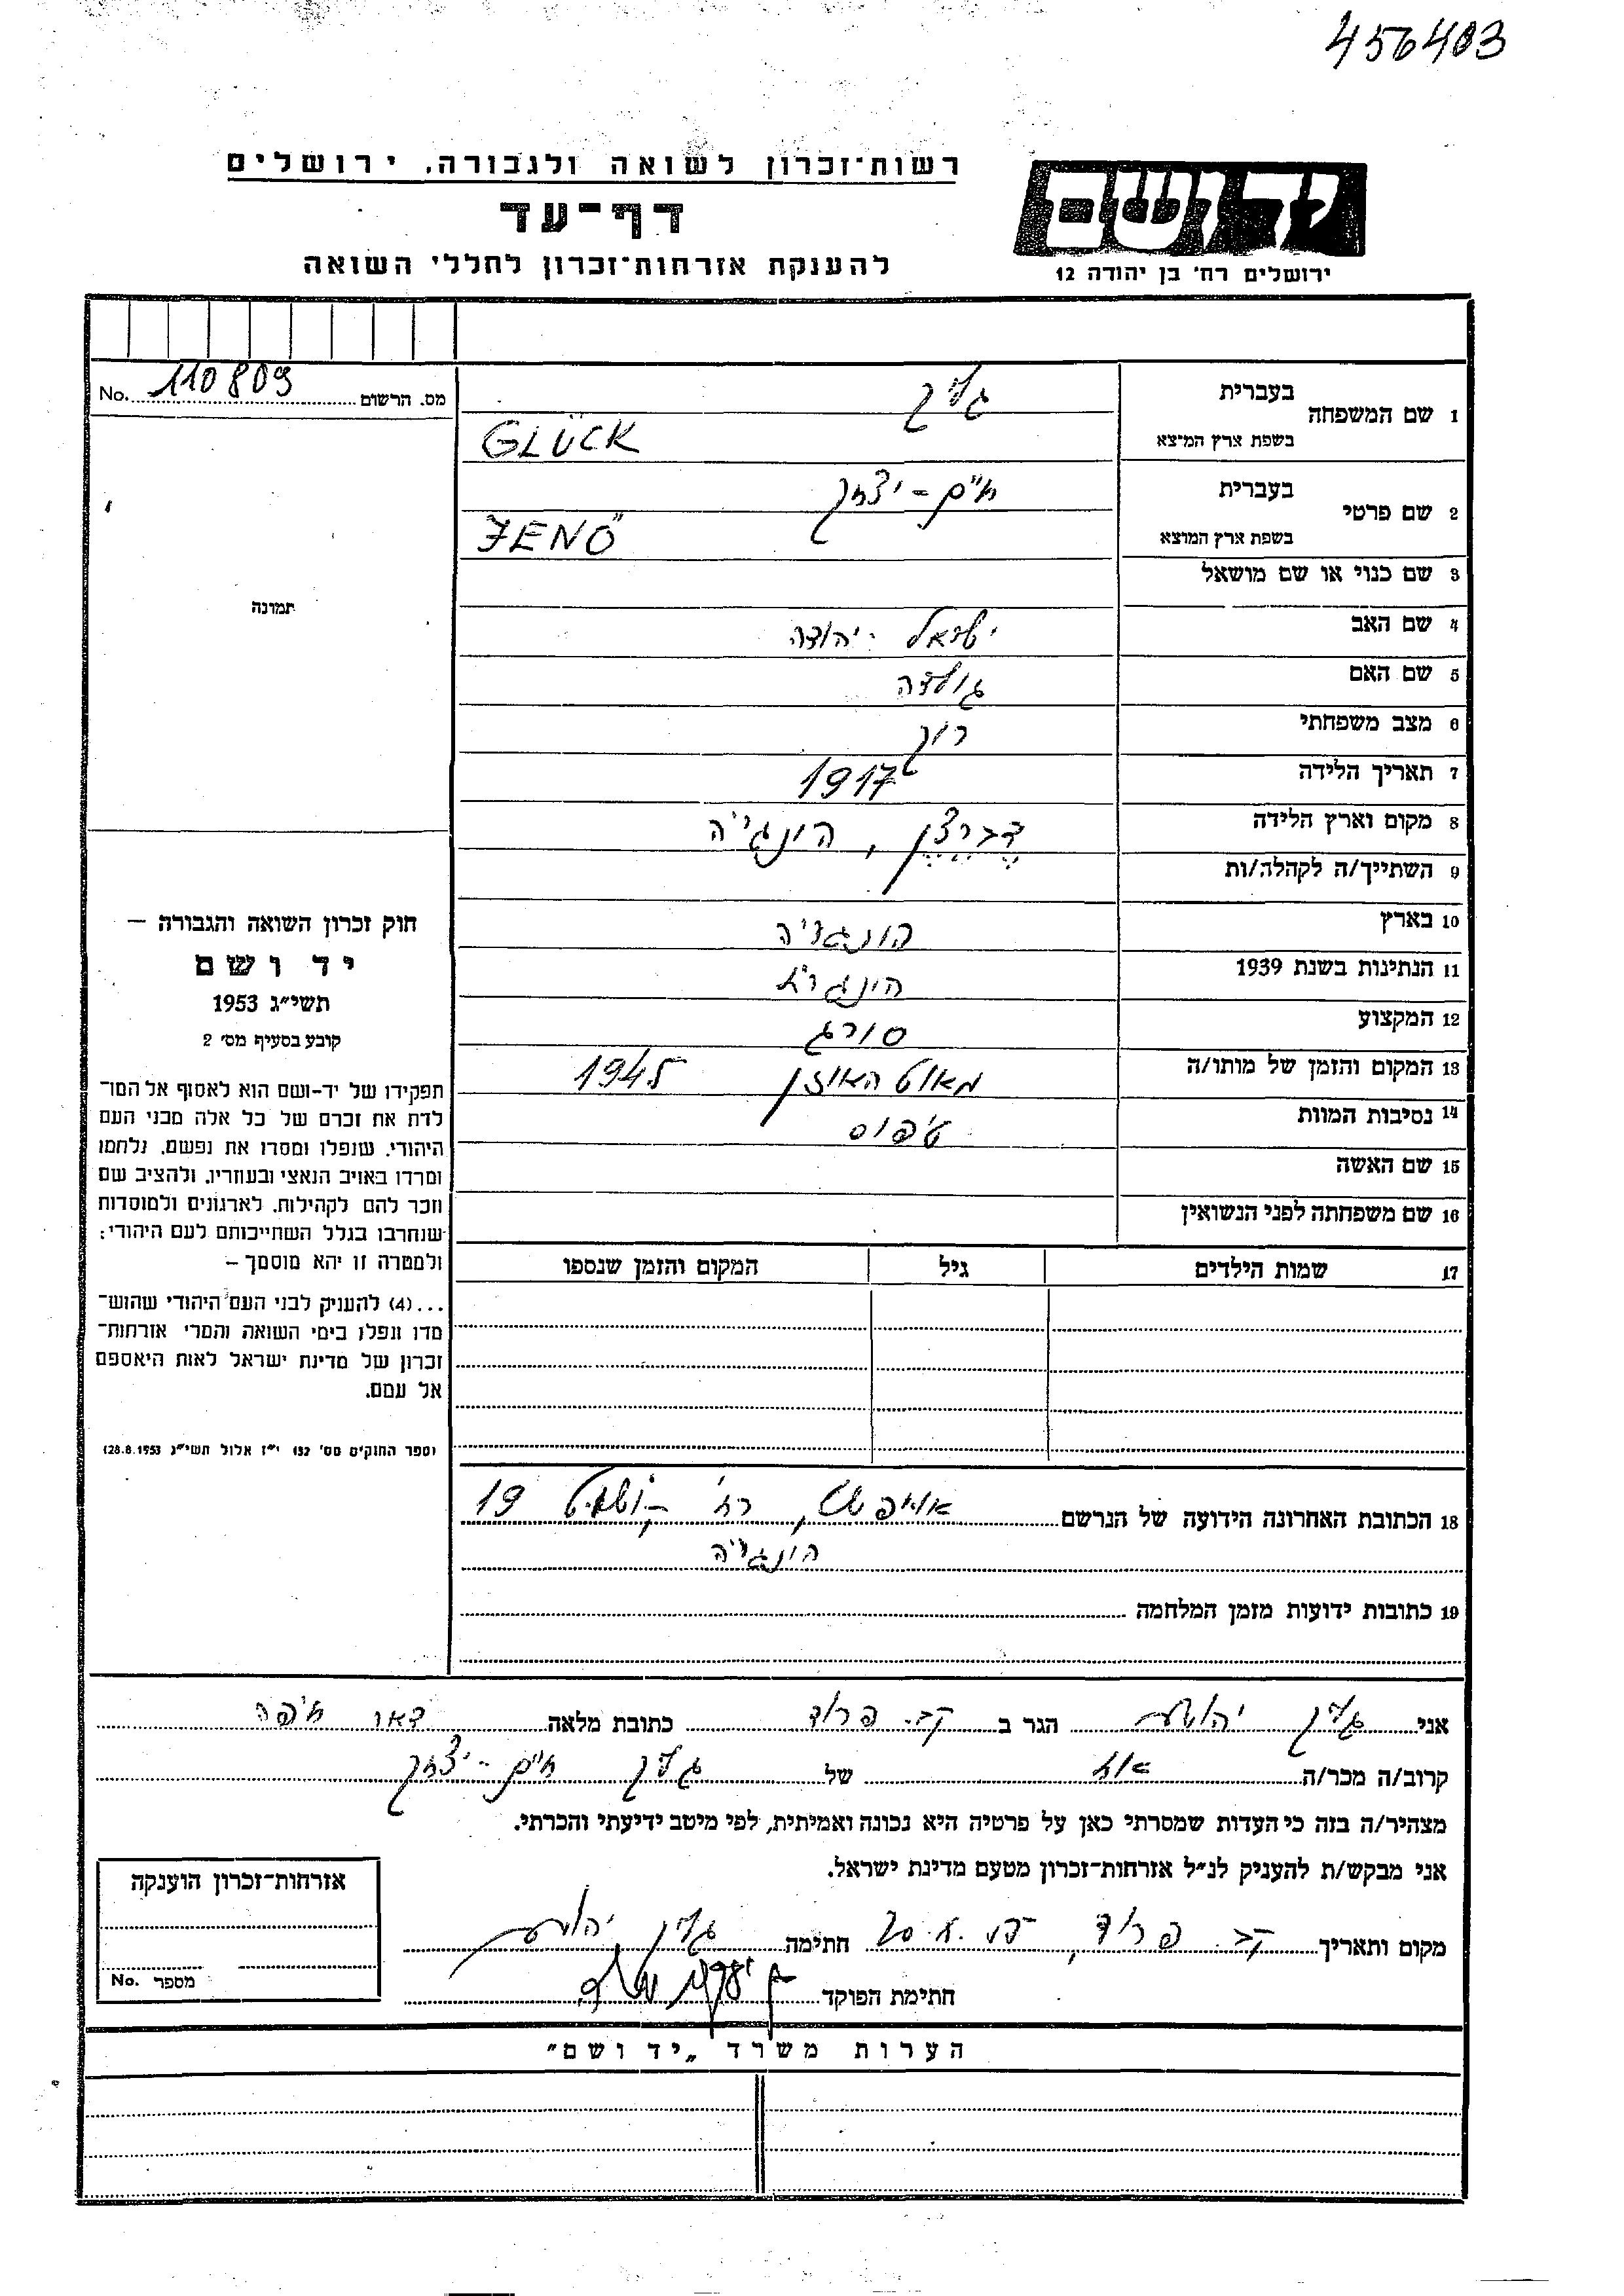 456403
רשות־זכרון לשואה ולגבורה, ירושלים
דף־עד
להענקת אזרחות־זכרון לחללי השואה
יד ושם
ירושלים רח׳ בן יהודה 12
מס. הרשום 110809 No.
1 שם המשפחה
בעברית גליק
בשפת ארץ המוצא GLÜCK
2 שם פרטי
בעברית חיים - יצחק
בשפת ארץ המוצא JENŐ
3 שם כנוי או שם מושאל
4 שם האב ישראל - יהודה
5 שם האם גולדה
6 מצב משפחתי רווק
7 תאריך הלידה 1917
8 מקום וארץ הלידה דברצן, הונגריה
9 השתייך/ה לקהלה/ות
10 בארץ הונגריה
11 הנתינות בשנת 1939 הונגרית
12 המקצוע סורג
13 המקום והזמן של מותו/ה מאוטהאוזן 1945
14 נסיבות המוות טיפוס
15 שם האשה
16 שם משפחתה לפני הנשואין
17 שמות הילדים גיל המקום והזמן שנספו
18 הכתובת האחרונה הידועה של הנרשם רח׳ 19
הונגריה
19 כתובות ידועות מזמן המלחמה
תמונה
חוק זכרון השואה והגבורה –
יד ושם
תשי״ג 1953
קובע בסעיף מס׳ 2
תפקידו של יד-ושם הוא לאסוף אל המו־
לדת את זכרם של כל אלה מבני העם
היהודי, שנפלו ומסרו את נפשם, נלחמו
ומרדו באויב הנאצי ובעוזריו, ולהציב שם
וזכר להם לקהילות, לארגונים ולמוסדות
שנחרבו בגלל השתייכותם לעם היהודי;
ולמטרה זו יהא מוסמך –
...(4) להעניק לבני העם היהודי שהוש־
מדו ונפלו בימי השואה והמרי אזרחות־
זכרון של מדינת ישראל לאות היאספם
אל עמם.
(ספר החוקים מס׳ 132 י״ז אלול תשי״ג 28.8.1953)
אני גליק יהושע הגר ב קב. פרוד כתובת מלאה דאר חיפה
קרוב/ה מכר/ה אח של גליק חיים - יצחק
מצהיר/ה בזה כי העדות שמסרתי כאן על פרטיה היא נכונה ואמיתית, לפי מיטב ידיעתי והכרתי.
אני מבקש/ת להעניק לנ״ל אזרחות-זכרון מטעם מדינת ישראל.
מקום ותאריך קב. פרוד, חתימה גליק יהושע
חתימת הפוקד
אזרחות-זכרון הוענקה
מספר No.
הערות משרד „יד ושם״